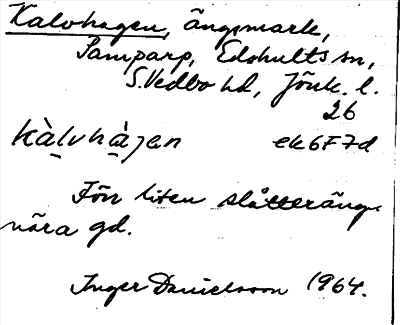 Kalvhagen, ängsmark,
Samparp, Edshults sn,
S.Vedbo hd, Jönk. l.
26
kàlvhàjen ek6F7d
Förr liten slåtteräng
nära gd.
Inger Danielsson 1964.